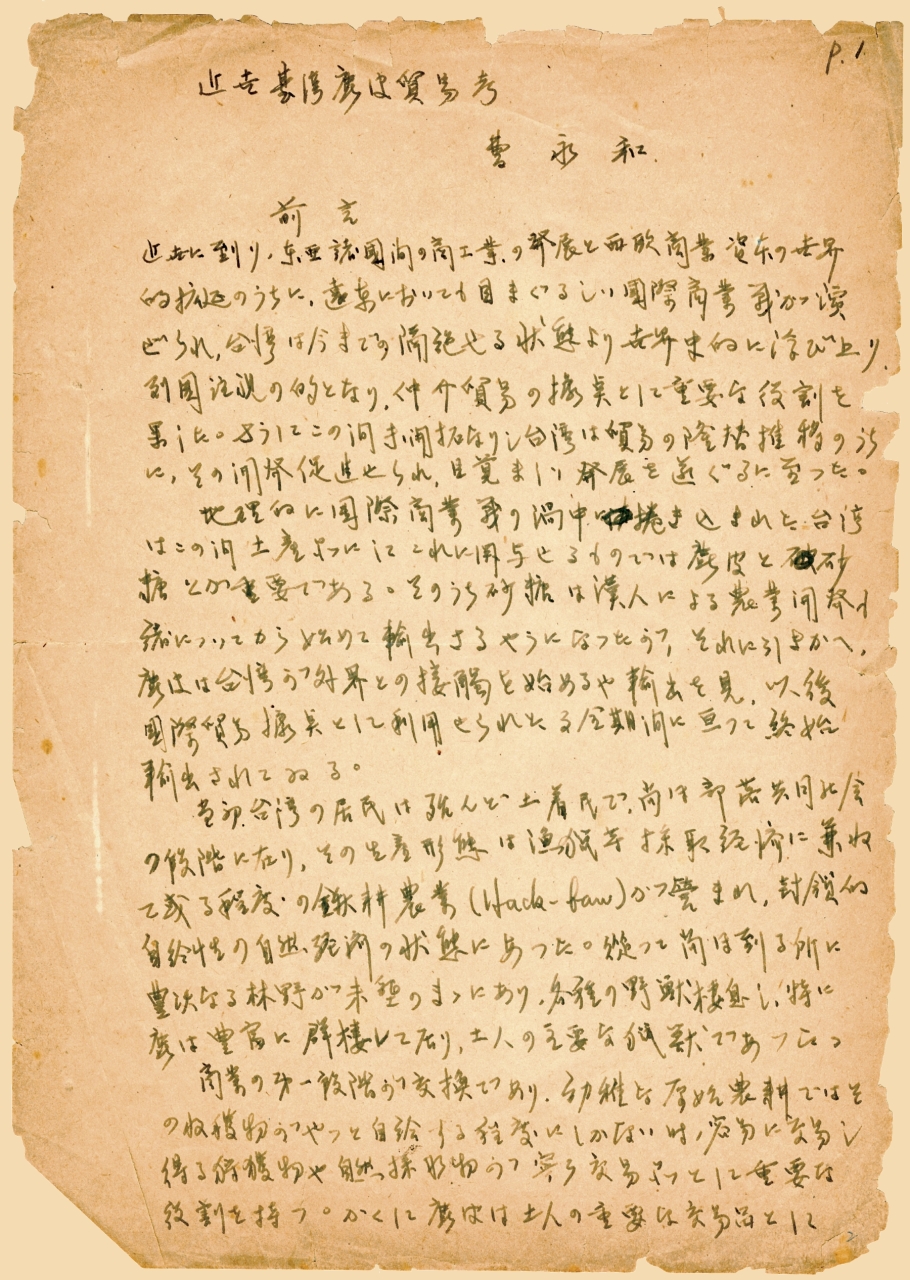 P.1
近世臺湾鹿皮貿易考
曹永和
前言
近世に到り、东亜諸國间の商工業の發展と西欧商業资本の世界
的拡延のうちに、遠東においても目まぐるしい國際商業戦が演
ぜられ、台湾は今までの隔絶せる状態より世界史的に浮び上り、
列国注視の的となり、仲介貿易の據奌として重要な役割を
果した。さうしてこの间未開拓なりし台湾は貿易の隆替推移のうち
に、その開發促進せられ、目覚ましい發展を遂ぐるに至った。
地理的に国際商業戦の渦中に捲き込まれた台湾
はこの间土産品にしてこれに関与せるものでは鹿皮と砂
糖とが重要である。そのうち砂糖は漢人による農業開發の
緒についてから始めて輸出さるやうになったが、それに引きかへ、
鹿皮は台湾が外界との接觸を始めるや輸出を見、以後
國際貿易據奌として利用せられたる全期间に亘って終始
輸出されてゐる。
当初台湾の居民は殆んど土着民で、尚ほ部落共同社会
の段階に在り、その生産形態は漁猟等採取経済に兼ね
て或る程度の鍬耕農業(Hack-bau)が營まれ、封鎖的
自給性の自然経済の状態にあった。従って尚ほ到る所に
豊沃なる林野が未墾のまゝにあり、各種の野獣棲息し、特に
鹿は豊富に群棲して居り、土人の主要な猟獣であった。
商業の第一段階が交換であり、幼稚な原始農耕ではそ
の收穫物がやっと自給する程度にしかない时、容易に交易し
得る狩獲物や自然採取物が寧ろ交易品として重要な
役割を持つ。かくして鹿皮は土人の重要な交易品として